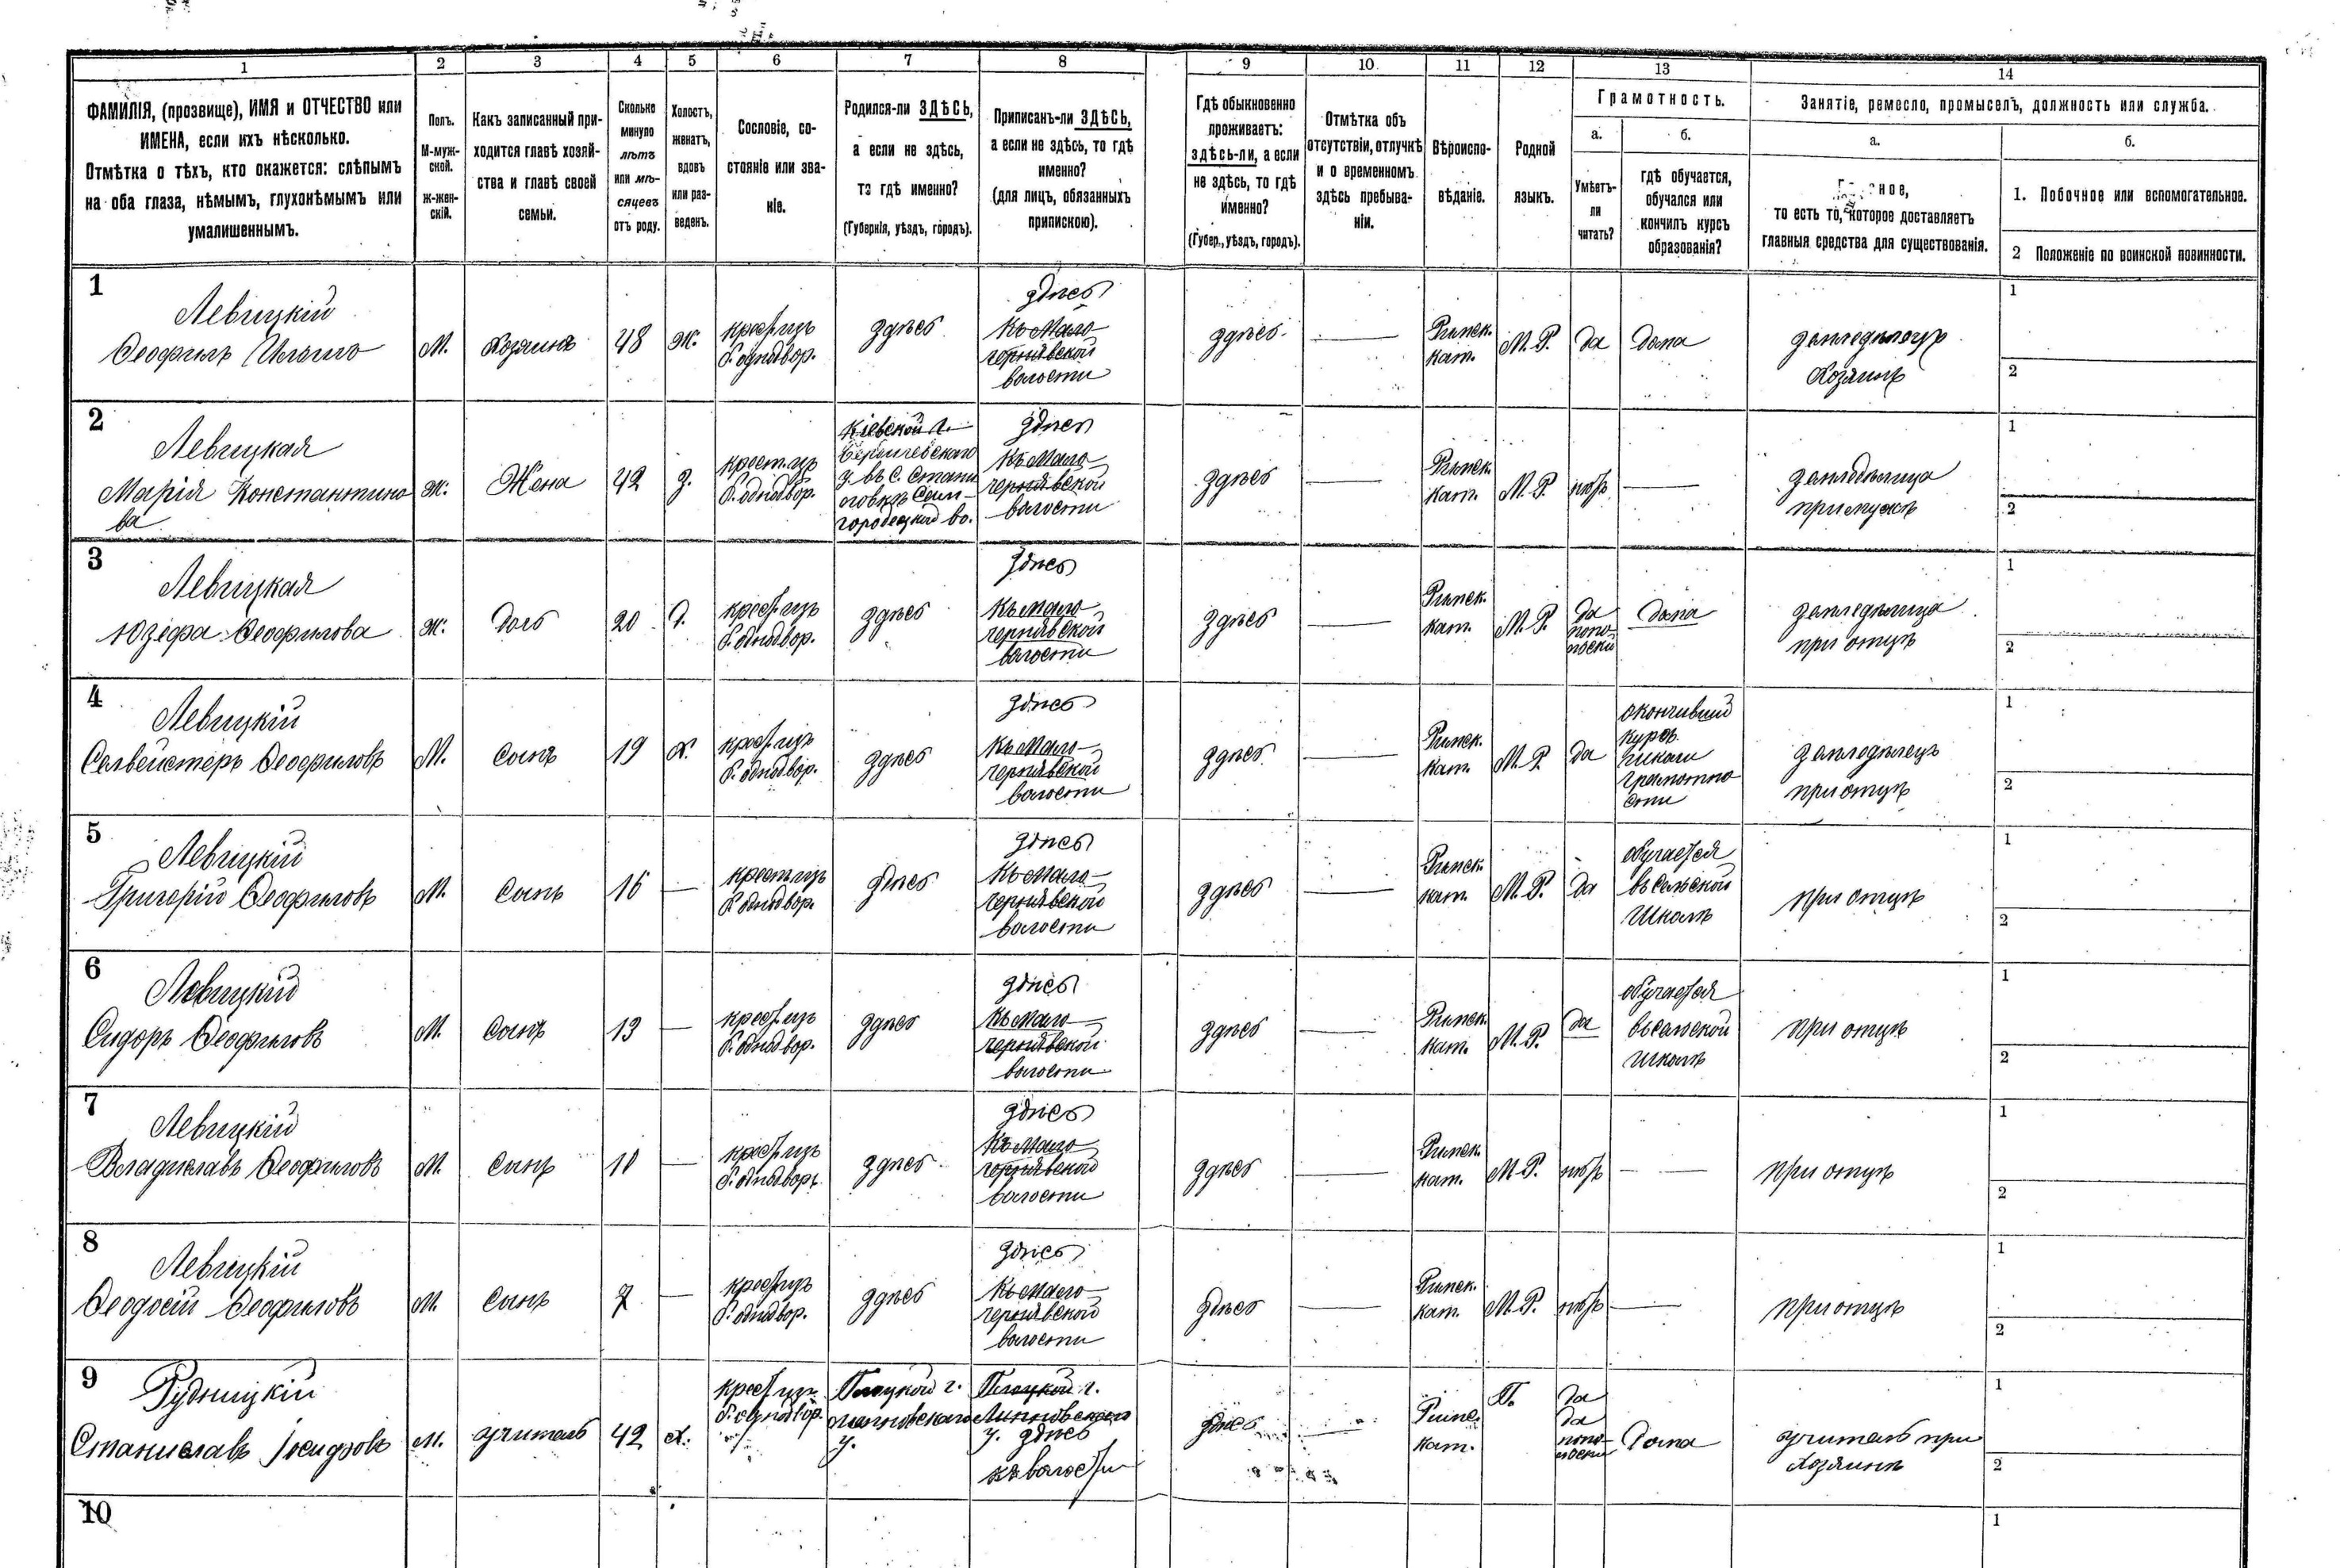 1 2 3 4 5 6 7 8 9 10 11 12 13 14
ФАМИЛІЯ, (прозвище), ИМЯ и ОТЧЕСТВО или
ИМЕНА, если ихъ нѣсколько.
Отмѣтка о тѣхъ, кто окажется: слѣпымъ
на оба глаза, нѣмымъ, глухонѣмымъ или
умалишеннымъ.
Полъ.
М-муж-
ской.
ж-жен-
скій.
Какъ записанный при-
ходится главѣ хозяй-
ства и главѣ своей
семьи.
Сколько
минуло
лѣтъ
или мѣ-
сяцевъ
отъ роду.
Холостъ,
женатъ,
вдовъ
или раз-
веденъ.
Сословіе, со-
стояніе или зва-
ніе.
Родился-ли ЗДѢСЬ,
а если не здѣсь,
то гдѣ именно?
(Губернія, уѣздъ, городъ).
Приписанъ-ли ЗДѢСЬ,
а если не здѣсь, то гдѣ
именно?
(для лицъ, обязанныхъ
припискою).
Гдѣ обыкновенно
проживаетъ:
здѣсь-ли, а если
не здѣсь, то гдѣ
именно?
(Губер., уѣздъ, городъ).
Отмѣтка объ
отсутствіи, отлучкѣ
и о временномъ
здѣсь пребыва-
ніи.
Вѣроиспо-
вѣданіе.
Родной
языкъ.
Грамотность.
а.
Умѣетъ-
ли
читать?
б.
гдѣ обучается,
обучался или
кончилъ курсъ
образованія?
Занятіе, ремесло, промыселъ, должность или служба.
а.
то есть то, которое доставляетъ
главныя средства для существованія.
б.
1. Побочное или вспомогательное.
2 Положеніе по воинской повинности.
1
Левицкій
Ѳеофилъ
М.
Хозяинъ
48
ж.
крест. изъ
б. однодвор.
здѣсь
здѣсь
къ Мало-
чернявской
волости
здѣсь
Римск.
кат.
М. Р.
да
дома
земледѣлецъ
Хозяинъ
1
2
2
Левицкая
Марія Константино
ва
ж.
Жена
42
з.
крест. изъ
б. однодвор.
Кіевской г.
Бердичевскаго
у. въ с.
здѣсь
къ Мало-
чернявской
волости
здѣсь
Римск.
кат.
М. Р.
нѣтъ
земледѣлица
при мужѣ
1
2
3
Левицкая
Юзефа Ѳеофилова
ж.
Дочь
20
д.
крест. изъ
б. однодвор.
здѣсь
здѣсь
къ мало-
чернявской
волости
здѣсь
Римск.
кат.
М. Р.
да
попо-
льски
дома
земледѣлица
при отцѣ
1
2
4
Левицкій
Селвейстеръ Ѳеофиловъ
М.
сынъ
19
х.
крест. изъ
б. однодвор.
здѣсь
здѣсь
къ Мало-
чернявской
волости
здѣсь
Римск.
кат.
М. Р.
да
окончивший
курсъ
школи
грамотно
сти
земледѣлецъ
при отцѣ
1
2
5
Левицкій
Григорій Ѳеофиловъ
М.
сынъ
16
крест. изъ
б. однодвор.
здѣсь
здѣсь
къ Мало-
чернявской
волости
здѣсь
Римск.
кат.
М. Р.
да
обучается
въ сельской
школѣ
при отцѣ
1
2
6
Левицкій
Сидоръ Ѳеофиловъ
М.
сынъ
13
крест. изъ
б. однодвор.
здѣсь
здѣсь
къ мало-
чернявской
волости
здѣсь
Римск.
кат.
М. Р.
да
обучается
въ сельской
школѣ
при отцѣ
1
2
7
Левицкій
Владиславъ Ѳеофиловъ
М.
сынъ
крест. изъ
б. однодвор.
здѣсь
здѣсь
къ Мало-
чернявской
волости
здѣсь
Римск.
кат.
М. Р.
нѣтъ
при отцѣ
1
2
8
Левицкій
Ѳеодосій Ѳеофиловъ
М.
сынъ
7
крест. изъ
б. однодвор.
здѣсь
здѣсь
къ мало-
чернявской
волости
здѣсь
Римск.
кат.
М. Р.
нѣтъ
при отцѣ
1
2
9
Рудницкій
Станиславъ
М.
учитель
42
х.
крест. изъ
б. однодвор.
Плоцкой г.
Липновскаго
у.
Плоцкой г.
Липновскаго
у. здѣсь
къ волости
здѣсь
Римс.
кат.
П.
да
да
попо-
льски
дома
учитель при
хозяинѣ
1
2
10
1